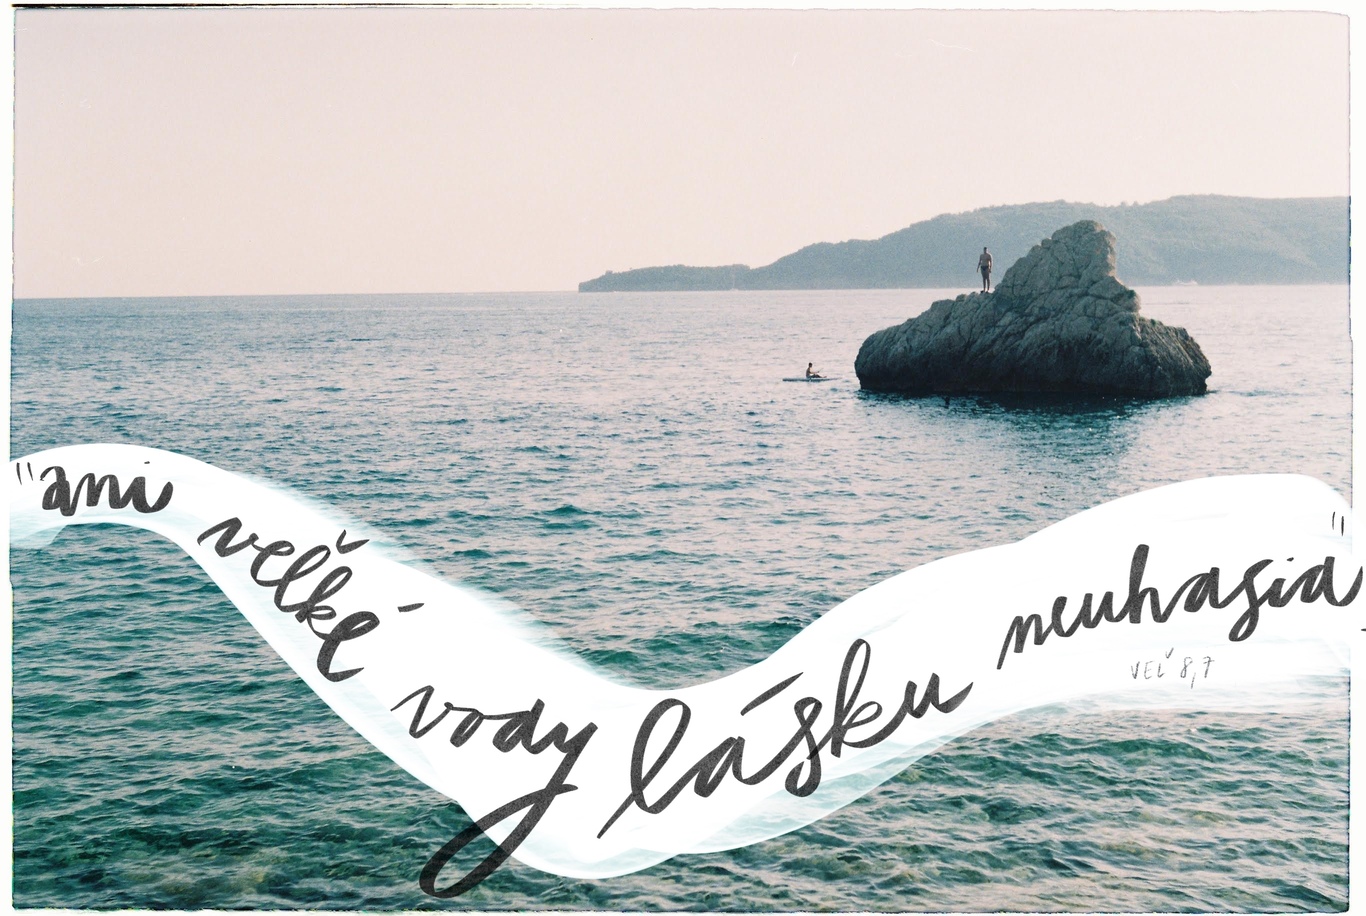 "ani veľké vody lásku neuhasia"
VEĽ 8,7